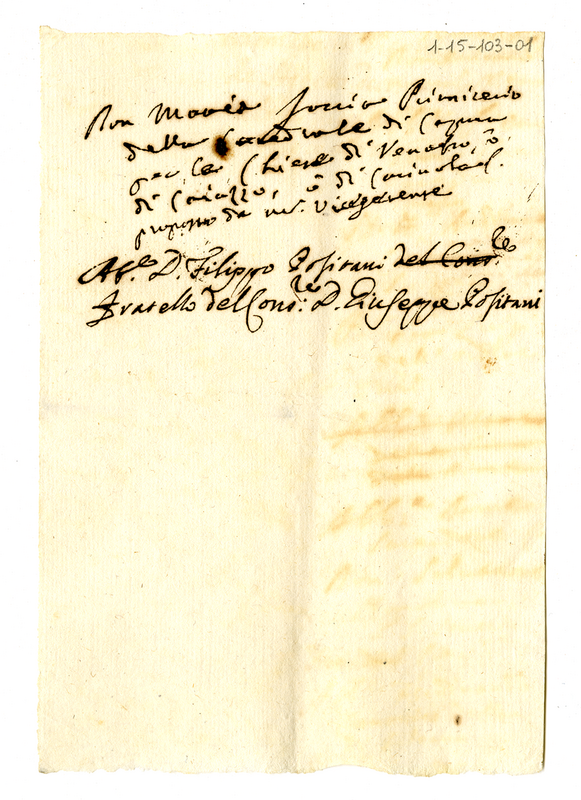 1-15-103-01
Don Mario Primicerio
della Catedrale di Capua
per le Chiese di Venafro, ò
di Caiazzo, ò di Carinola
proposto da m.r Vicegerente
Ab.e D. Filippo Positani del Cons.re
Fratello del Cons.re D. Giuseppe Positani